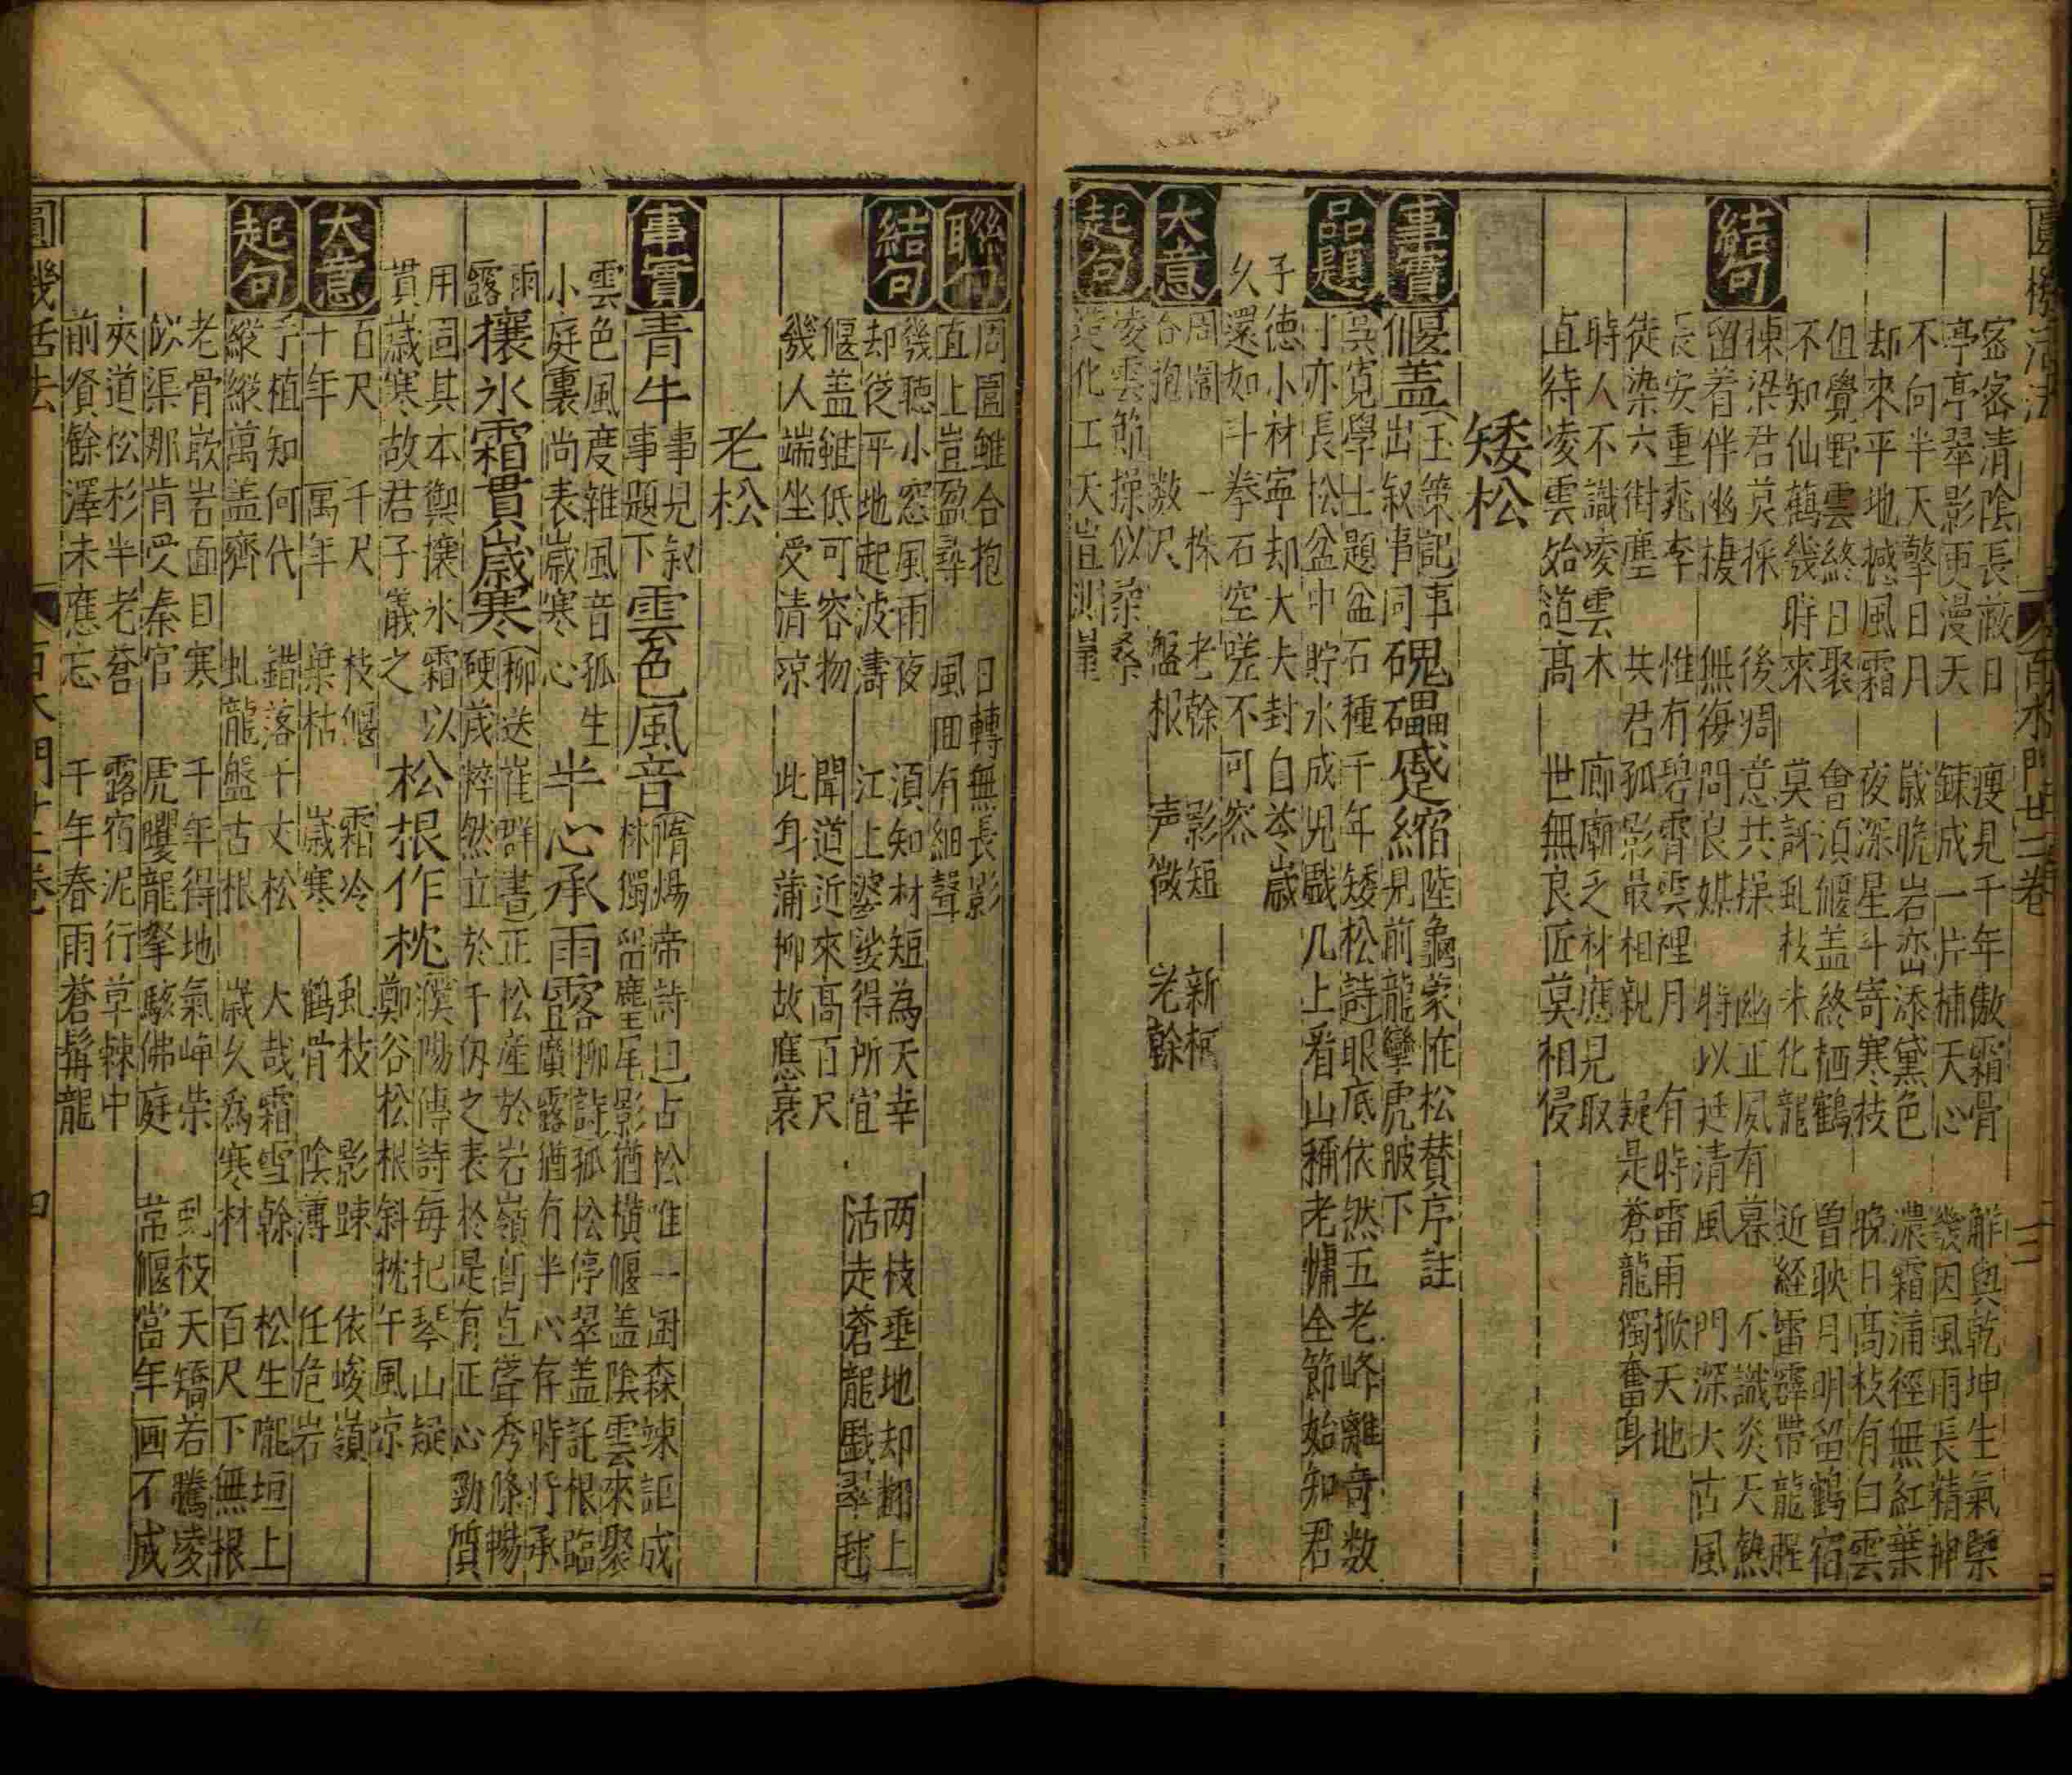 圓機活法 百木門廿二卷 三
密密清陰長蔽日 瘦見千年傲霜骨 解與乾坤生氣槩
亭亭翠影更漫天 鍊成一片補天心 幾因風雨長精神
不向半天擎日月 歲晚岩巒添黛色 濃霜蒲徑無紅葉
却來平地撼風霜 夜深星斗寄寒枝 晚日高枝有白雲
但覺野雲終日聚 會須偃盖終栖鶴 曽映月明留鶴宿
不知仙鶴幾時來 莫訝虬枝未化龍 近経雷霹帶龍腥
結句
棟梁君莫採 後凋意共操 幽正夙有慕 不識炎天熱
留着伴幽棲 無復問良媒 時以延清風 門深大古風
長安重桃李 惟有碧霄雲裡月 有時雷雨掀天地
徒染六街塵 共君孤影最相親 疑是蒼龍獨奮身
時人不識凌雲木 廊廟之材應見取
直待凌雲始道高 世無良匠莫相侵
矮松
事實
偃盖
(玉策記)事
出叙事同
磈礧蹙縮
陸龜蒙怪松賛序註
見前龍孿虎跛下
品題
吳寬學士題盆石種千年矮松詩眼底依然五老峰離奇数
寸亦長松盆中貯水成兒戲几上看山稱老慵全節始知君
子徳小材寧却大夫封自岑歲
乆還如斗拳石空嗟不可容
大意
周闊 一株 老榦 影短 新柯
合抱 数尺 盤根 声微 老榦
起句
凌雲節操似柔桑
化工天豈測量
聯句
周圍雖合抱 日轉無長影
直上豈盈尋 風囬有細聲
幾聽小窓風雨夜 湏知材短為天幸 两枝垂地却翻上
却從平地起波濤 江上婆娑得所宜 活走蒼龍戱翠毬
結句
偃盖雖低可容物 聞道近來高百尺
幾人端坐受清涼 此身蒲柳故應衰
老松
事實
青牛
事見叙
事題下
雲色風音
(隋煬帝詩曰)古松唯一樹森竦詎成
林獨留塵尾影猶橫偃盖陰雲來聚
雲色風度雜風音孤生
小庭裏尚表歲寒心
半心承雨露
(柳詩)孤松停翠盖託根臨
廣露猶有半心存時將承
雨
露
攘氷霜貫歲寒
(柳送崔群畫)正松産於岩嶺高直聳秀條暢
硬歲粹然立於千仭之表於是有正心勁質
用固其本禦攘氷霜以
貫歲寒故君子儀之
松根作枕
濮陽傳詩每把琴山疑
鄭谷松根斜枕午風涼
大意
百尺 千尺 枝偃 霜冷 虬枝 影踈 依峻嶺
十年 萬年 葉枯 歲寒 鶴骨 陰薄 任危岩
起句
手植知何代 錯落千丈松 大哉霜雪榦 松生隴垣上
縱縱萬盖齊 虬龍盤古根 歲乆爲寒材 百尺下無根
老骨嵚岩面目寒 千年得地氣崢荣 虬枝天矯若騰凌
似渠那肯受秦官 虎躩龍拏駭佛庭 常偃當年画不成
夾道松杉半老蒼 露宿泥行草棘中
前賢餘澤未應忘 千年春雨蒼髯龍
圓機活法 百木門廿二卷 四